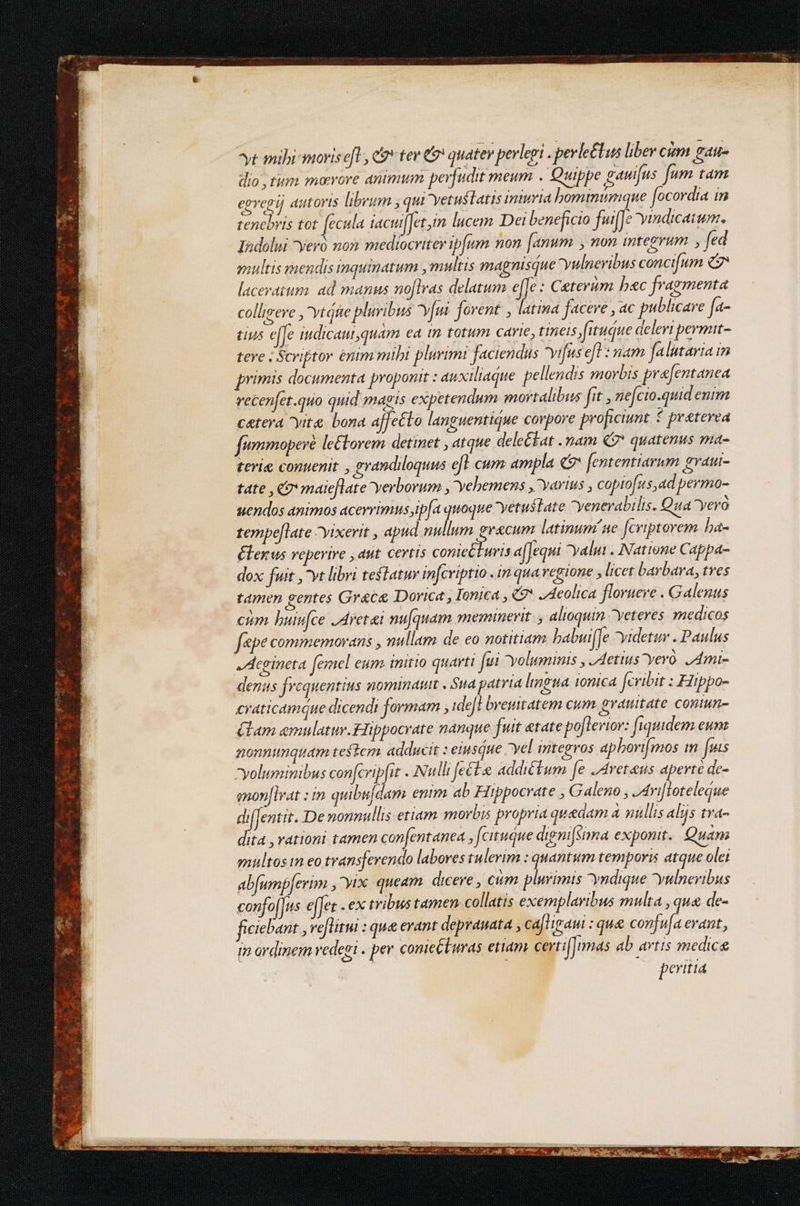 vt mihi moris est, & ter & quater perlegi. perlectus liber cùm gau-
dio, tùm mœrore animum perfudit meum. Quippe gauisus sum tam
egregij autoris librum, qui vetustatis iniuria hominumque socordia in
tenebris tot secula iacuisset, in lucem Dei beneficio fuisse vindicatum.
Indolui verò non mediocriter ipsum non sanum, non integrum, sed
multis mendis inquinatum, multis magnisque vulneribus concisum &
laceratum ad manus nostras delatum esse: Cæterùm hæc fragmenta
colligere, vtque pluribus vsui forent, latina facere, ac publicare sa-
tius esse iudicaui, quàm ea in totum carie, tineis, situque deleri permit-
tere: Scriptor enim mihi plurimi faciendus visus est: nam salutaria in
primis documenta proponit: auxiliaque pellendis morbis præsentanea
recenset. quo quid magis expetendum mortalibus sit, nescio. quid enim
cætera vitæ bona affecto languentique corpore proficiunt? præterea
summoperè lectorem detinet, atque delectat. nam & quatenus ma-
teriæ conuenit, grandiloquus est cum ampla & sententiarum graui-
tate, & maiestate verborum, vehemens, varius, copiosus, ad permo-
uendos animos acerrimus, ipsa quoque vetustate venerabilis. Qua verò
tempestate vixerit, apud nullum græcum latinum´ue scriptorem ha-
ctenus reperire, aut certis coniecturis assequi valui. Natione Cappa-
dox fuit, vt libri testatur inscriptio. in qua regione, licet barbara, tres
tamen gentes Græcæ Dorica, Ionica, & Aeolica floruere. Galenus
cùm huiusce Aretæi nusquam meminerit, alioquin veteres medicos
sæpe commemorans, nullam de eo notitiam habuisse videtur. Paulus
Aegineta semel eum initio quarti sui voluminis, Aetius verò Ami-
denus frequentius nominauit. Sua patria lingua ionica scribit: Hippo-
craticamque dicendi formam, idest breuitatem cum grauitate coniun-
ctam æmulatur. Hippocrate nanque fuit ætate posterior: siquidem eum
nonnunquam testem adducit: eiusque vel integros aphorismos in suis
voluminibus conscripsit. Nulli sectæ addictum se Aretæus apertè de-
monstrat: in quibusdam enim ab Hippocrate, Galeno, Aristoteleque
dissentit. De nonnullis etiam morbis propria quædam à nullis alijs tra-
dita, rationi tamen consentanea, scituque dignissima exponit. Quàm
multos in eo transferendo labores tulerim: quantum temporis atque olei
absumpserim, vix queam dicere, cùm plurimis vndique vulneribus
confossus esset. ex tribus tamen collatis exemplaribus multa, quæ de-
ficiebant, restitui: quæ erant deprauata, castigaui: quæ confusa erant,
in ordinem redegi. per coniecturas etiam certissimas ab artis medicæ
peritia